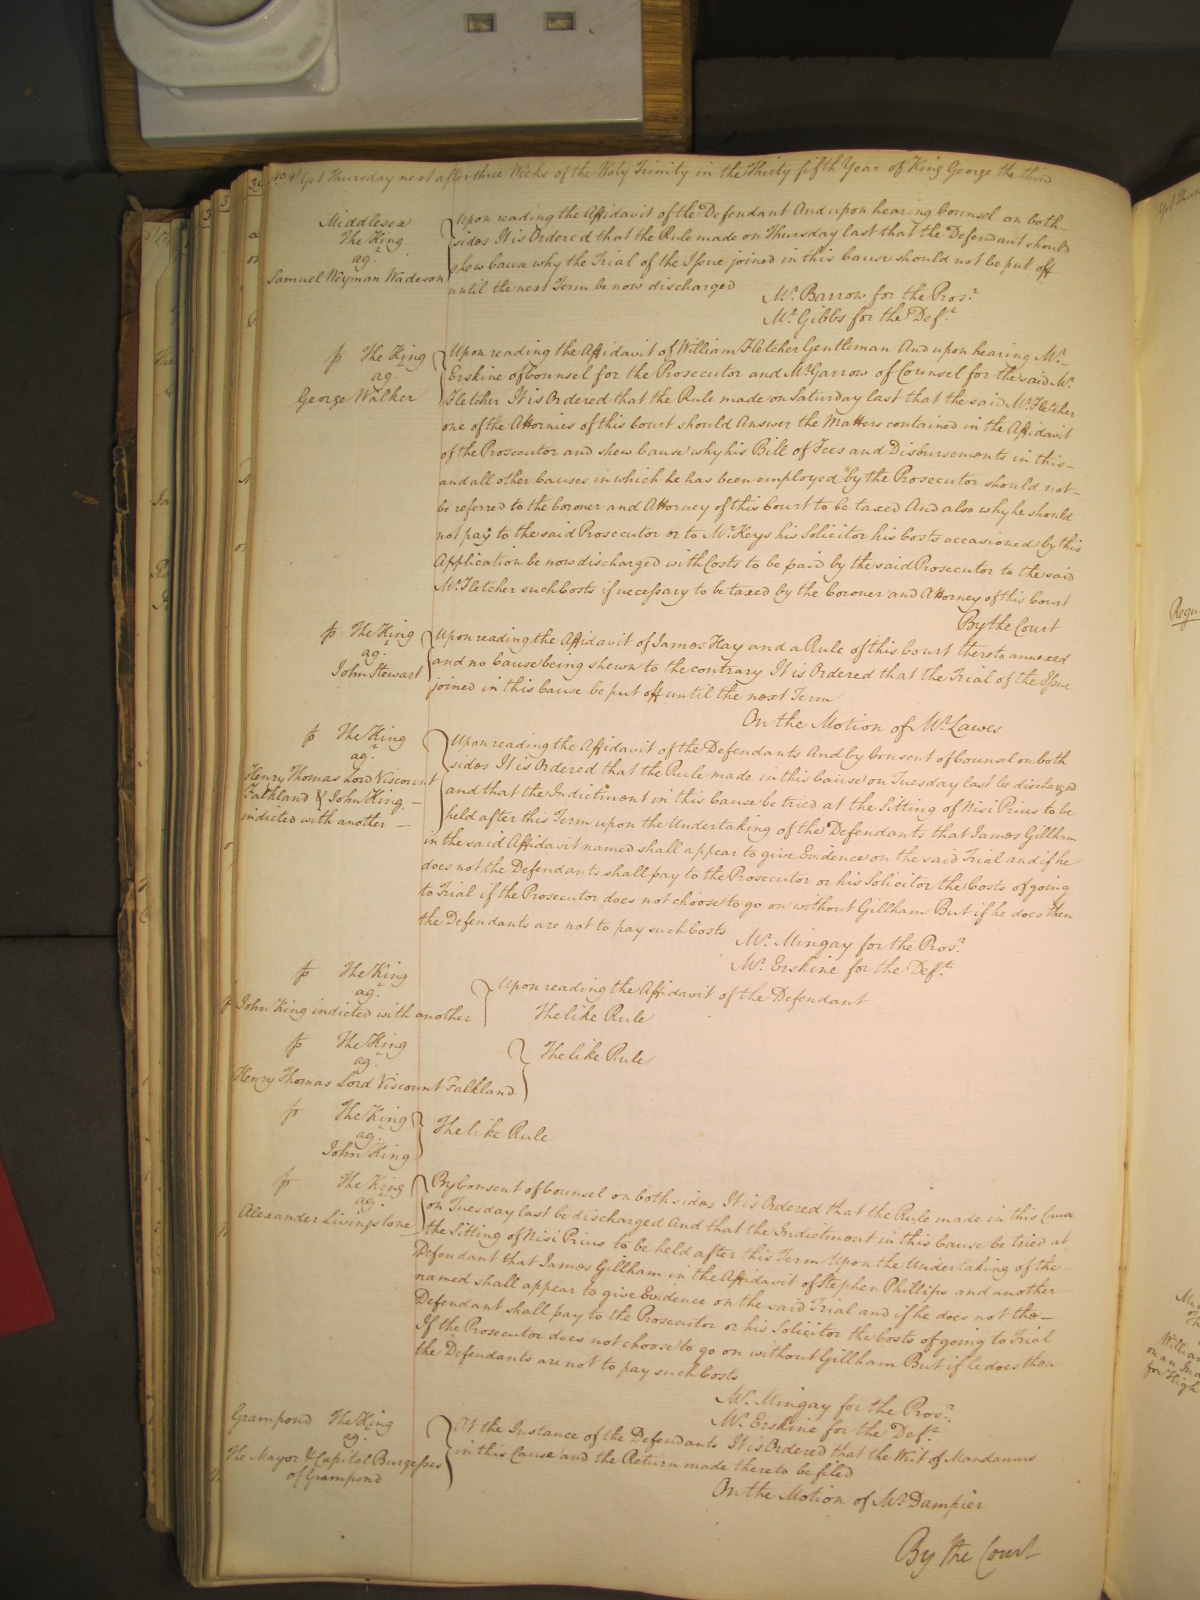 Yet Thursday next after three Weeks of the Holy Trinity in the Thirty fifth Year of King George the third
Middlesex
The King
ag.
Samuel Weyman Wadeson
Upon reading the Affidavit of the Defendant And upon hearing Counsel on both
sides It is Ordered that the Rule made on Thursday last that the Defendant should
shew Cause why the Trial of the Issue joined in this Cause should not be put off
until the next Term be now discharged
Mr. Barrow for the Prosr.
Mr. Gibbs for the Deft.
The King
ag.
George Walker
Upon reading the Affidavit of William Fletcher Gentleman And upon hearing Mr.
Erskine of Counsel for the Prosecutor and Mr. Garrow of Counsel for the said Mr.
Fletcher It is Ordered that the Rule made on Saturday last that the said Mr. Fletcher
one of the Attornies of this Court should Answer the Matters contained in the Affidavit
of the Prosecutor and shew Cause why his Bill of Fees and Disbursements in this
and all other Causes in which he has been employed by the Prosecutor should not
be referred to the Coroner and Attorney of this Court to be taxed And also why he should
not pay to the said Prosecutor or to Mr. Keys his Solicitor his Costs occasioned by this
Application be now discharged with Costs to be paid by the said Prosecutor to the said
Mr. Fletcher such Costs if necessary to be taxed by the Coroner and Attorney of this Court
By the Court
The King
ag.
John Stewart
Upon reading the Affidavit of James Hay and a Rule of this Court thereto annexed
and no Cause being shewn to the contrary It is Ordered that the Trial of the Issue
joined in this Cause be put off until the next Term
On the Motion of Mr. Lawes
The King
ag.
Henry Thomas Lord Viscount
Falkland & John King
indicted with another
Upon reading the Affidavit of the Defendants And by Consent of Counsel on both
sides It is Ordered that the Rule made in this Cause on Tuesday last be discharged
and that the Indictment in this Cause be tried at the Sitting of Nisi Prius to be
held after this Term upon the Undertaking of the Defendants that James Gillham
in the said Affidavit named shall appear to give Evidence on the said Trial and if he
does not the Defendants shall pay to the Prosecutor or his Solicitor the Costs of going
to Trial if the Prosecutor does not choose to go on without Gillham But if he does then
the Defendants are not to pay such Costs
Mr. Mingay for the Prosr.
Mr. Erskine for the Defts.
The King
ag.
John King indicted with another
Upon reading the Affidavit of the Defendant
The like Rule
The King
ag.
Henry Thomas Lord Viscount Falkland
The like Rule
The King
ag.
John King
The like Rule
The King
ag.
Alexander Livingstone
By Consent of Counsel on both sides It is Ordered that the Rule made in this Cause
on Tuesday last be discharged And that the Indictment in this Cause be tried at
the Sitting of Nisi Prius to be held after this Term Upon the Undertaking of the
Defendant that James Gillham in the Affidavit of Stephen Phillips and another
named shall appear to give Evidence on the said Trial and if he does not the
Defendant shall pay to the Prosecutor or his Solicitor the Costs of going to Trial
If the Prosecutor does not choose to go on without Gillham But if he does then
the Defendants are not to pay such Costs
Mr. Mingay for the Prosr.
Mr. Erskine for the Deft.
Grampond The King
ag.
The Mayor & Capital Burgesses
of Grampond
At the Instance of the Defendants It is Ordered that the Writ of Mandamus
in this Cause and the Return made thereto be filed
On the Motion of Mr. Dampier
By the Court